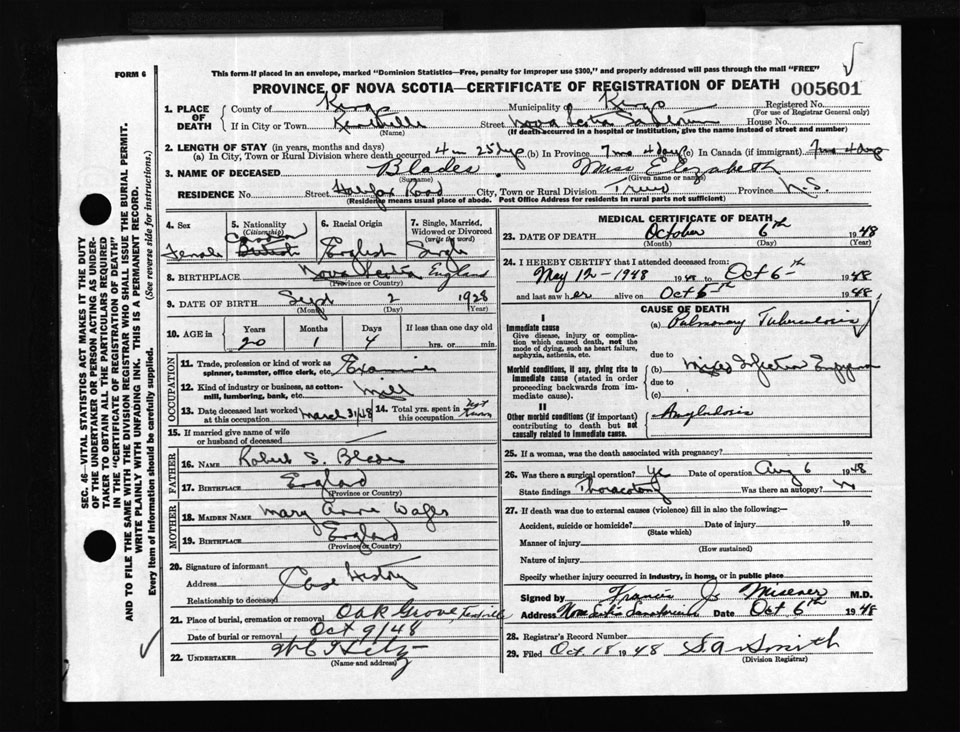 FORM 6
This form if placed in an envelope, marked "Dominion Statistics—Free, penalty for improper use $300," and properly addressed will pass through the mail "FREE"
PROVINCE OF NOVA SCOTIA—CERTIFICATE OF REGISTRATION OF DEATH 005601
1. PLACE OF DEATH County of Kings Municipality of Kings Registered No.
(For use of Registrar General only)
If in City or Town Kentville Street Nova Scotia Sanatorium House No.
(Name) (If death occurred in a hospital or institution, give the name instead of street and number)
2. LENGTH OF STAY (in years, months and days)
(a) In City, Town or Rural Division where death occurred 4 m 25 dys (b) In Province 7 mo 4 days (c) In Canada (if immigrant) 7 mo 4 dys
3. NAME OF DECEASED Blades Miss Elizabeth
(Surname) (Given name or names)
RESIDENCE No. Street Halifax Road City, Town or Rural Division Truro Province N.S.
(Residence means usual place of abode. Post Office Address for residents in rural parts not sufficient)
4. Sex Female
5. Nationality (Citizenship) Canadian British
6. Racial Origin English
7. Single, Married, Widowed or Divorced (write the word) Single
8. BIRTHPLACE Nova Scotia England
(Province or Country)
9. DATE OF BIRTH Sept 2 1928
(Month) (Day) (Year)
10. AGE in Years Months Days If less than one day old
20 1 4 hrs. or min.
OCCUPATION
11. Trade, profession or kind of work as spinner, teamster, office clerk, etc. Examiner
12. Kind of industry or business, as cotton-mill, lumbering, bank, etc. Mill
13. Date deceased last worked at this occupation March 31/48 14. Total yrs. spent in this occupation Not Known
15. If married give name of wife or husband of deceased
FATHER
16. NAME Robert S. Blades
17. BIRTHPLACE England
(Province or Country)
MOTHER
18. MAIDEN NAME Mary Anne
19. BIRTHPLACE England
(Province or Country)
20. Signature of informant
Address Case History
Relationship to deceased
21. Place of burial, cremation or removal Oak Grove Kentville
Date of burial or removal Oct 9/48
22. UNDERTAKER
(Name and address)
MEDICAL CERTIFICATE OF DEATH
23. DATE OF DEATH October 6th 1948
(Month) (Day) (Year)
24. I HEREBY CERTIFY that I attended deceased from:
May 12 - 1948 1948 to Oct 6th 1948
and last saw her alive on Oct 5th 1948
CAUSE OF DEATH
I
Immediate cause
Give disease, injury or complication which caused death, not the mode of dying, such as heart failure, asphyxia, asthenia, etc.
(a) Pulmonary Tuberculosis
due to
Morbid conditions, if any, giving rise to immediate cause (stated in order proceeding backwards from immediate cause).
(b) Mixed Infection Empyema
due to
(c)
II
Other morbid conditions (if important) contributing to death but not causally related to immediate cause.
Amyloidosis
25. If a woman, was the death associated with pregnancy?
26. Was there a surgical operation? Yes Date of operation Aug 6 1948
State findings Thoracotomy Was there an autopsy? No
27. If death was due to external causes (violence) fill in also the following:—
Accident, suicide or homicide? Date of injury 19
(State which)
Manner of injury
(How sustained)
Nature of injury
Specify whether injury occurred in industry, in home, or in public place
Signed by Francis J. Misener M.D.
Address Nova Scotia Sanatorium Date Oct 6th 1948
28. Registrar's Record Number
29. Filed Oct. 18 1948 S.A. Smith
(Division Registrar)
SEC. 46—VITAL STATISTICS ACT MAKES IT THE DUTY
OF THE UNDERTAKER OR PERSON ACTING AS UNDER-
TAKER TO OBTAIN ALL THE PARTICULARS REQUIRED
IN THE "CERTIFICATE OF REGISTRATION OF DEATH"
AND TO FILE THE SAME WITH THE DIVISION REGISTRAR WHO SHALL ISSUE THE BURIAL PERMIT.
WRITE PLAINLY WITH UNFADING INK. THIS IS A PERMANENT RECORD.
Every item of Information should be carefully supplied. (See reverse side for instructions.)